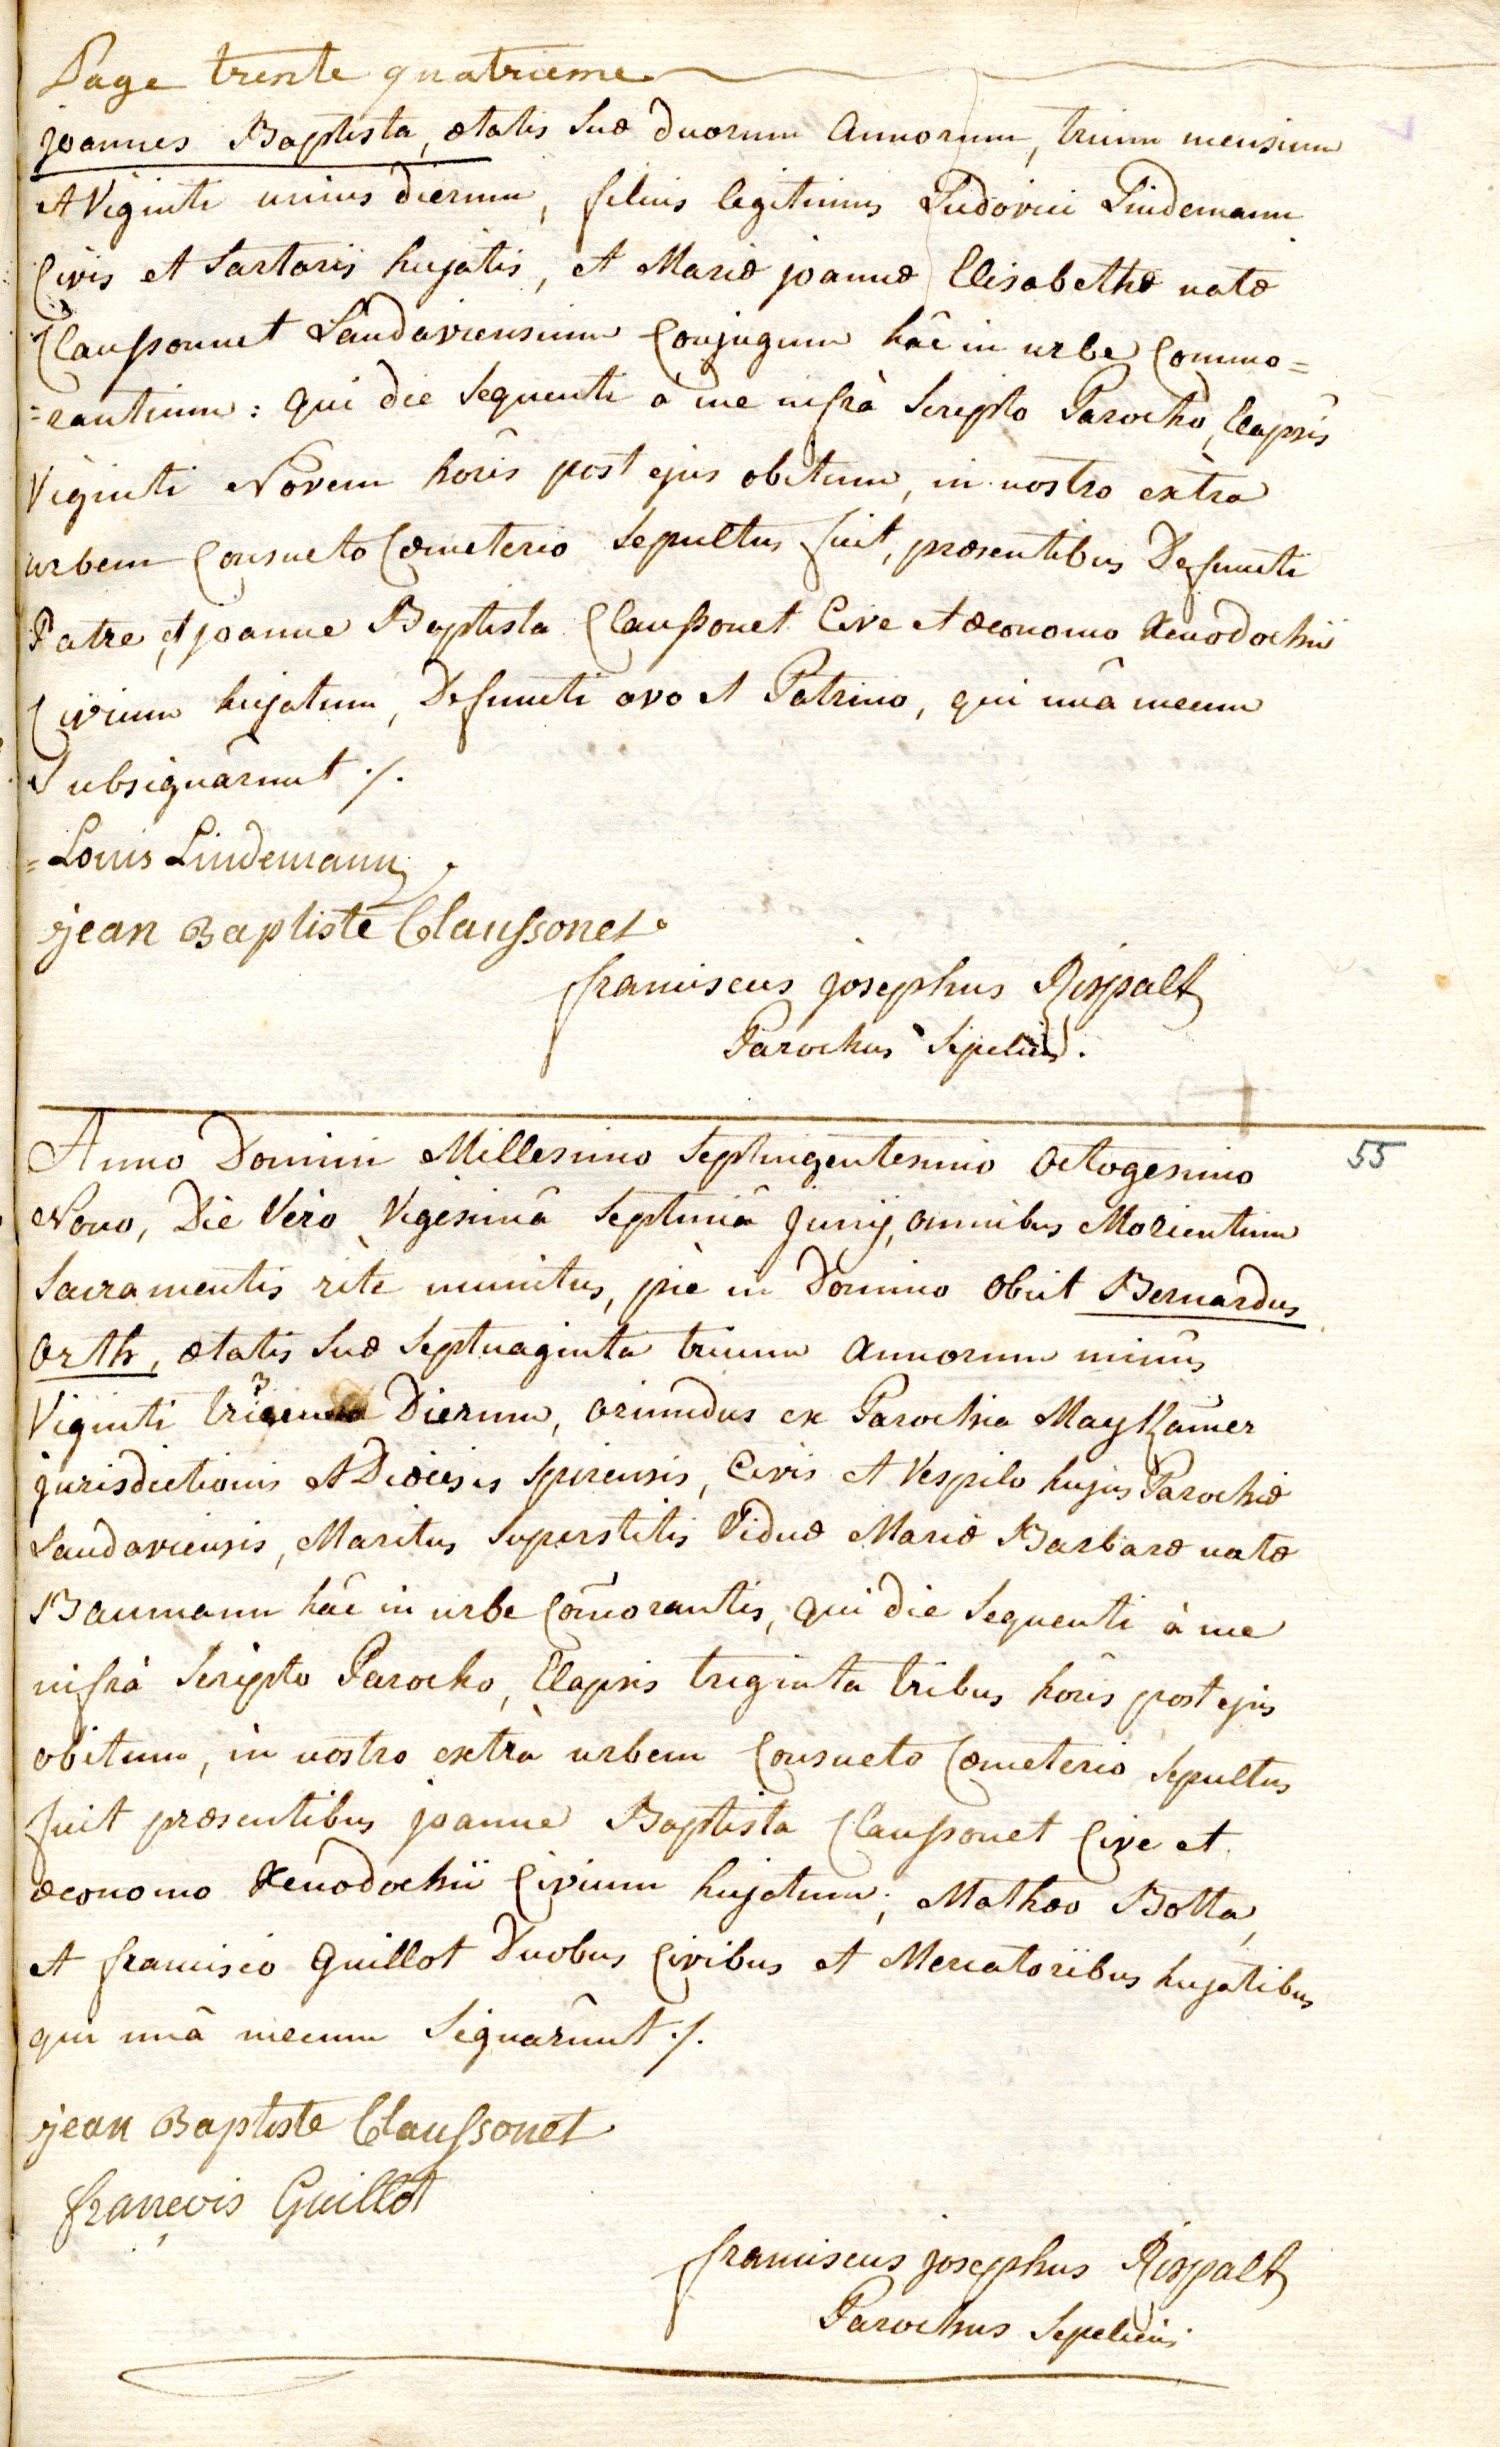 Page trente quatrieme
joannes Baptista, ætatis suæ duorum annorum, trium mensium
et Viginti unius dierum, filius legitimus Ludovici Lindemann
Civis et Sartoris hujatis, et Mariæ joannæ Elisabethæ natæ
Claussonnet Landaviensium Conjugum hâc in urbe Commo=
=rantium: qui die sequenti à me infrà scripto Parocho, Elapsis
Viginti Novem horis post ejus obitum, in nostro extra
urbem Consueto Cœmeterio sepultus fuit, præsentibus Defuncti
Patre, et joanne Baptista Claussonet Cive et œconomo Xenodochii
Civium hujatum, Defuncti avo et Patrino, qui unâ mecum
Subsignârunt ./.
=Louis Lindemann
jean Baptiste Claussonet.
franciscus josephus Rispalt
Parochus Sepeliens.
Anno Domini Millesimo Septingentesimo octogesimo 55
Nono, Die Vero Vigesimâ Septimâ Junij, omnibus Morientium
Sacramentis rite munitus, piè in Domino obiit Bernardus
Orth, ætatis suæ Septuaginta trium annorum minus
Viginti Dierum, oriundus ex Parochia Maykamer
jurisdictionis et Diœcesis Spirensis, Civis et Vespilo hujus Parochiæ
Landaviensis, Maritus superstitis Viduæ Mariæ Barbaræ natæ
Baumann hâc in urbe Com̃orantis, qui die sequenti à me
infrà Scripto Parocho, Elapsis triginta tribus horis post ejus
obitum, in nostro extrà urbem Consueto Cœmeterio sepultus
fuit præsentibus joanne Baptista Claussonet Cive et
œconomo Xenodochii Civium hujatum; Mathæo Botta,
et francisco Guillot Duobus Civibus et Mercatoribus hujatibus
qui unâ mecum Signarûnt ./.
jean Baptiste Claussonet
françois Guillot
franciscus josephus Rispalt
Parochus Sepeliens